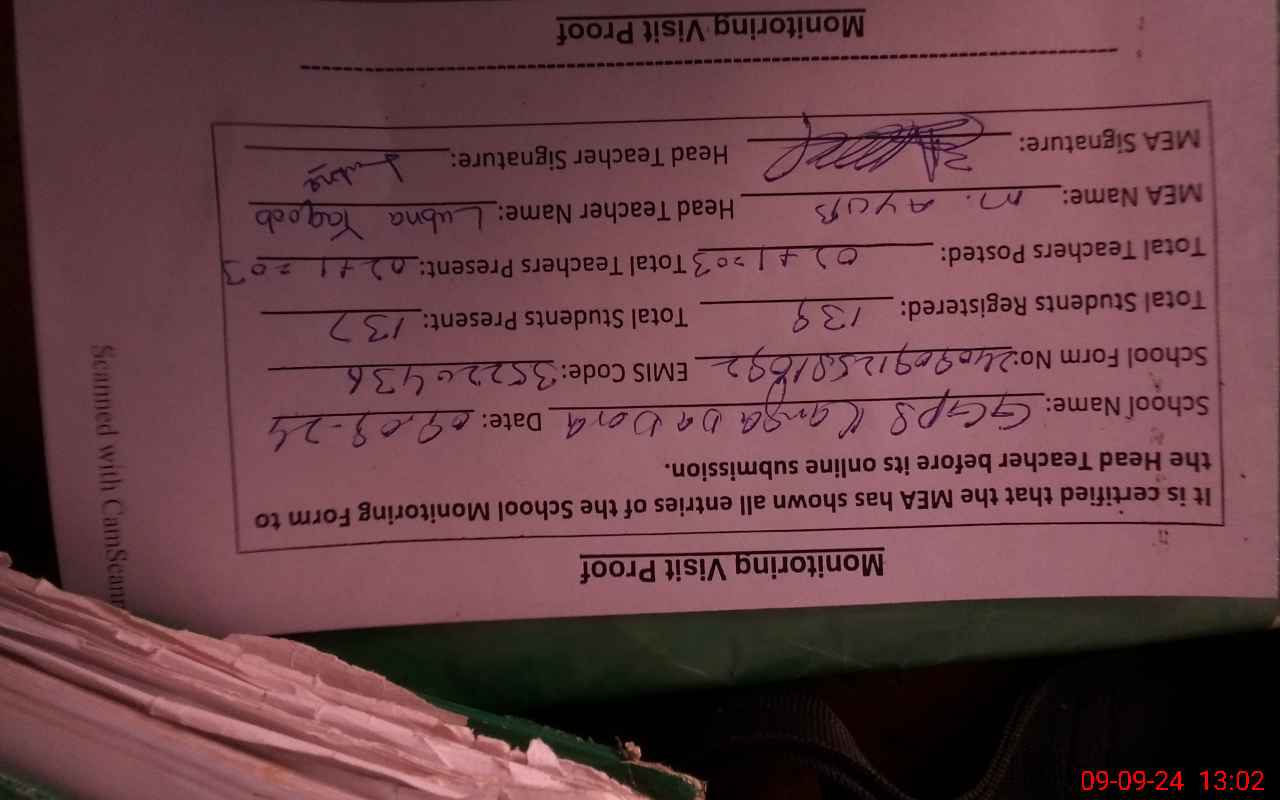 Monitoring Visit Proof
It is certified that the MEA has shown all entries of the School Monitoring Form to
the Head Teacher before its online submission.
School Name: GGPS Date: 09.09-24
School Form No: EMIS Code: 35220436
Total Students Registered: 139 Total Students Present: 137
Total Teachers Posted: 02+1=03 Total Teachers Present: 02+1=03
MEA Name: M. AYUB Head Teacher Name: Lubna Yaqoob
MEA Signature: Head Teacher Signature: Lubna
Monitoring Visit Proof
Scanned with CamScann
09-09-24 13:02